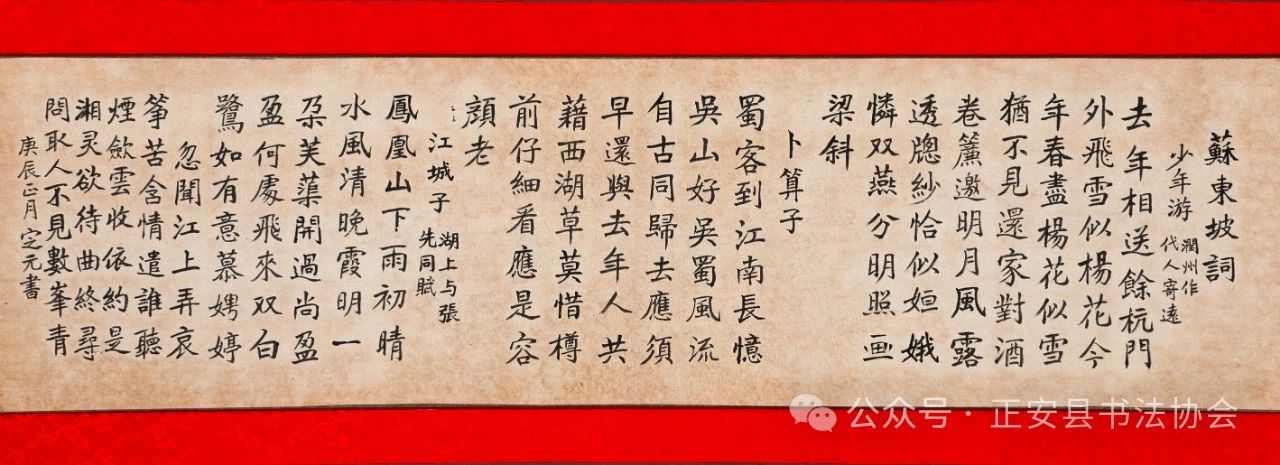 蘇東坡詞
少年游
潤州作
代人寄遠
去年相送餘杭門
外飛雪似楊花今
年春盡楊花似雪
猶不見還家對酒
卷簾邀明月風露
透牕紗恰似姮娥
憐双燕分明照画
梁斜
卜算子
蜀客到江南長憶
吳山好吳蜀風流
自古同歸去應須
早還與去年人共
藉西湖草莫惜樽
前仔細看應是容
顔老
江城子
湖上与張
先同賦
鳳凰山下雨初晴
水風清晚霞明一
朶芙蕖開過尚盈
盈何處飛來双白
鷺如有意慕娉婷
忽聞江上弄哀
筝苦含情遣誰聽
煙歛雲收依約是
湘灵欲待曲終尋
問取人不見數峯青
庚辰正月定元書
公众号·正安县书法协会